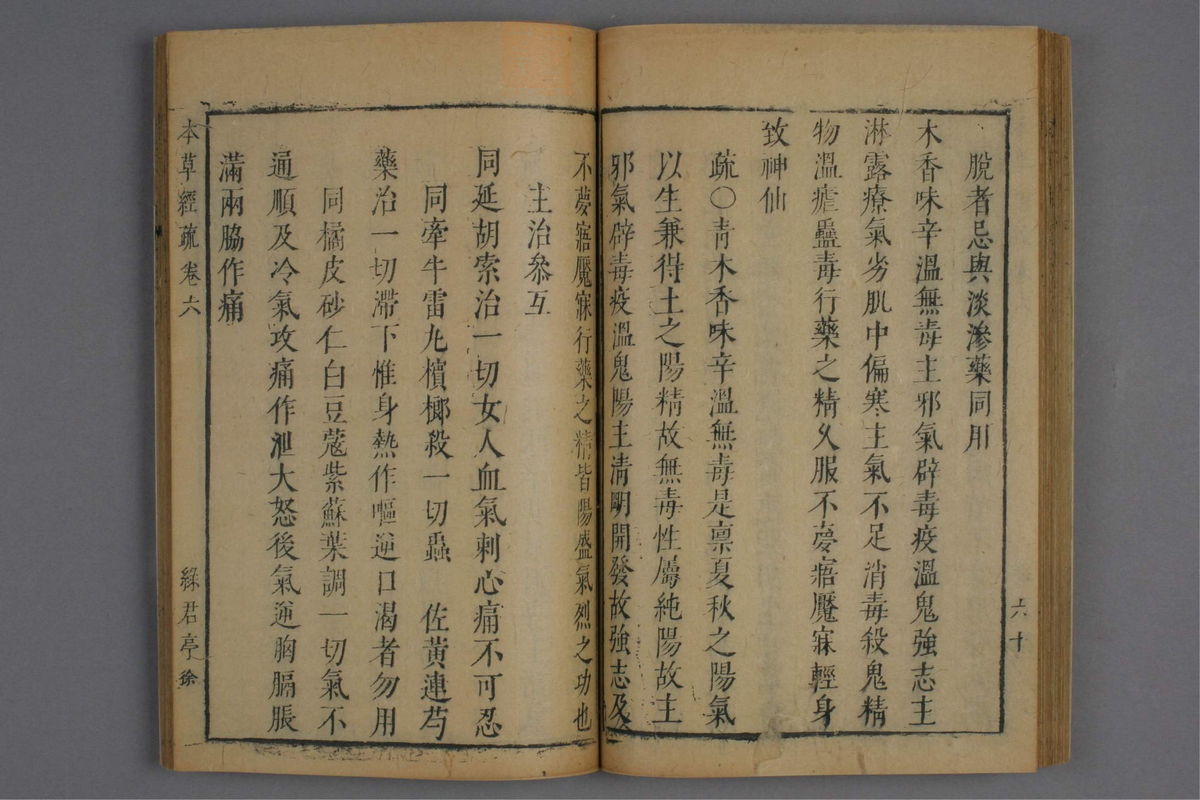 脫者忌與淡滲藥同用
木香味辛溫無毒主邪氣辟毒疫溫鬼強志主
淋露療氣劣肌中偏寒主氣不足消毒殺鬼精
物溫瘧蠱毒行藥之精久服不夢寤魘寐輕身
致神仙
疏○靑木香味辛溫無毒是禀夏秋之陽氣
以生兼得土之陽精故無毒性屬純陽故主
邪氣辟毒疫溫鬼陽主淸明開發故強志及
六十
不夢寤魘寐行藥之精皆陽盛氣烈之功也
主治叅互
同延胡索治一切女人血氣刺心痛不可忍
同牽牛雷丸檳榔殺一切蟲　佐黃連芍
藥治一切滯下惟身熱作嘔逆口渴者勿用
同橘皮砂仁白豆蔻紫蘇葉調一切氣不
通順及冷氣攻痛作泄大怒後氣逆胸膈脹
滿兩脇作痛
本草經疏卷六
綠君亭 徐